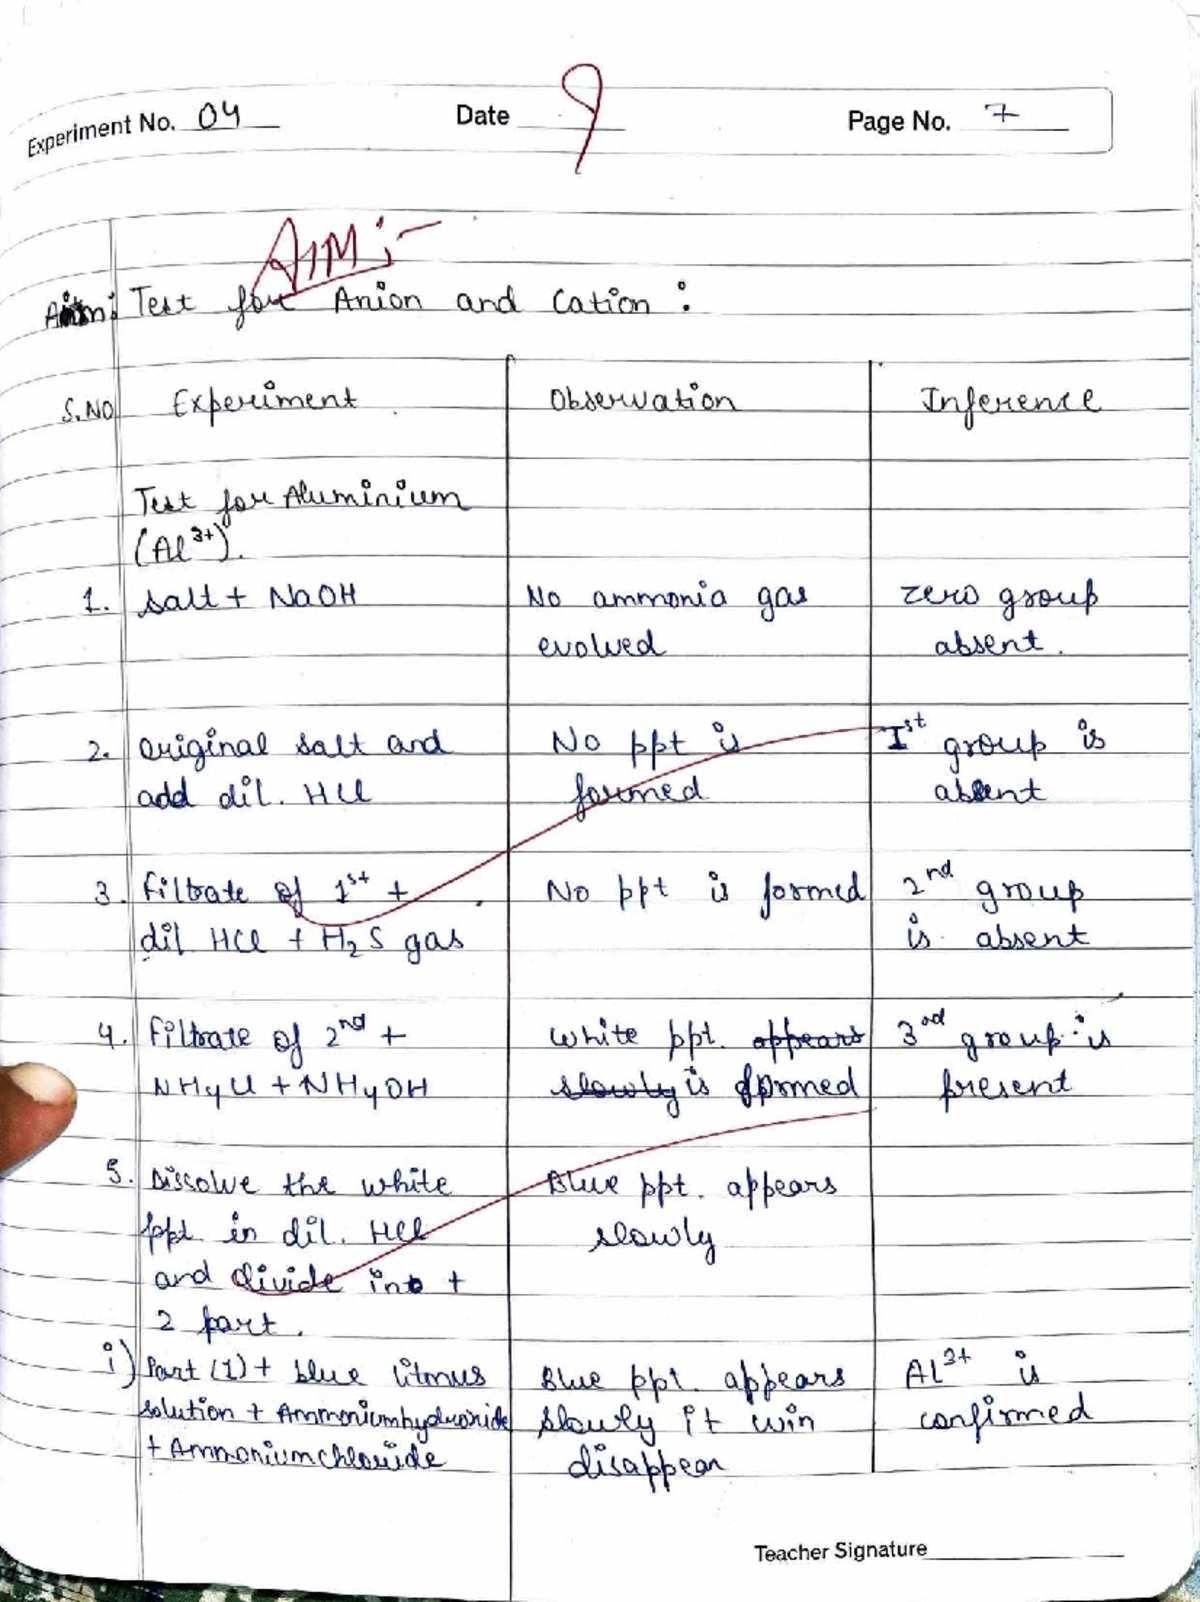 Experiment No. 04 Date 9 Page No. 7
AIM :-
Aim: Test for Anion and Cation :
S.NO Experiment Observation Inference
Test for Aluminium
(Al3+).
1. salt + NaOH No ammonia gas zero group
evolved absent.
2. original salt and No ppt is Ist group is
add dil. HCl formed absent
3. filtrate of 1st + No ppt is formed 2nd group
dil HCl + H2S gas is absent
4. filtrate of 2nd + white ppt. appears 3rd group is
NH4Cl + NH4OH slowly is formed present
5. Dissolve the white Blue ppt. appears
ppt. in dil. HCl slowly
and divide into +
2 part.
i) Part (1) + blue litmus Blue ppt. appears Al3+ is
solution + Ammoniumhydroxide slowly it win confirmed
+ Ammoniumchloride disappear
Teacher Signature